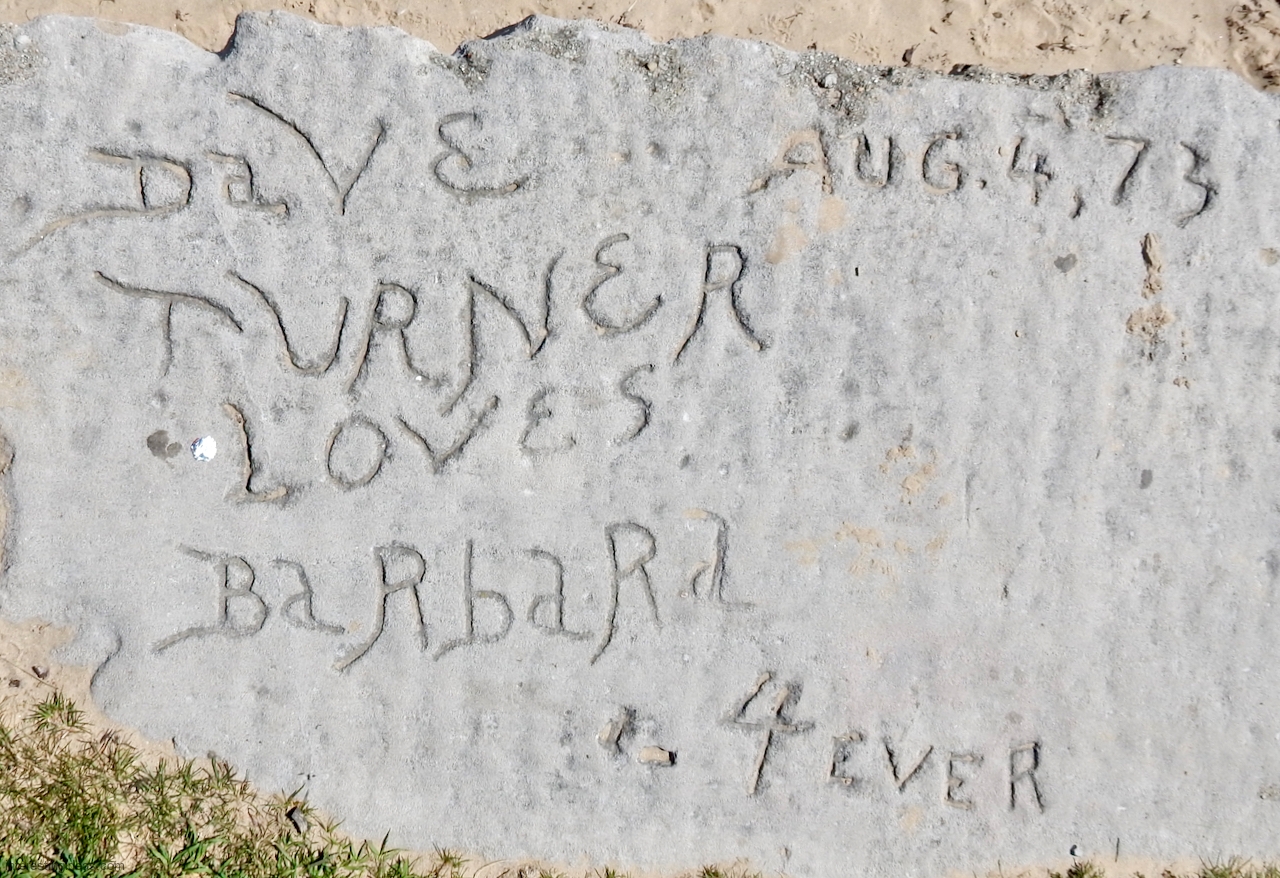 DaVE AUG. 4, 73
TURNER
LOVES
BaRbaRa
4 EVER